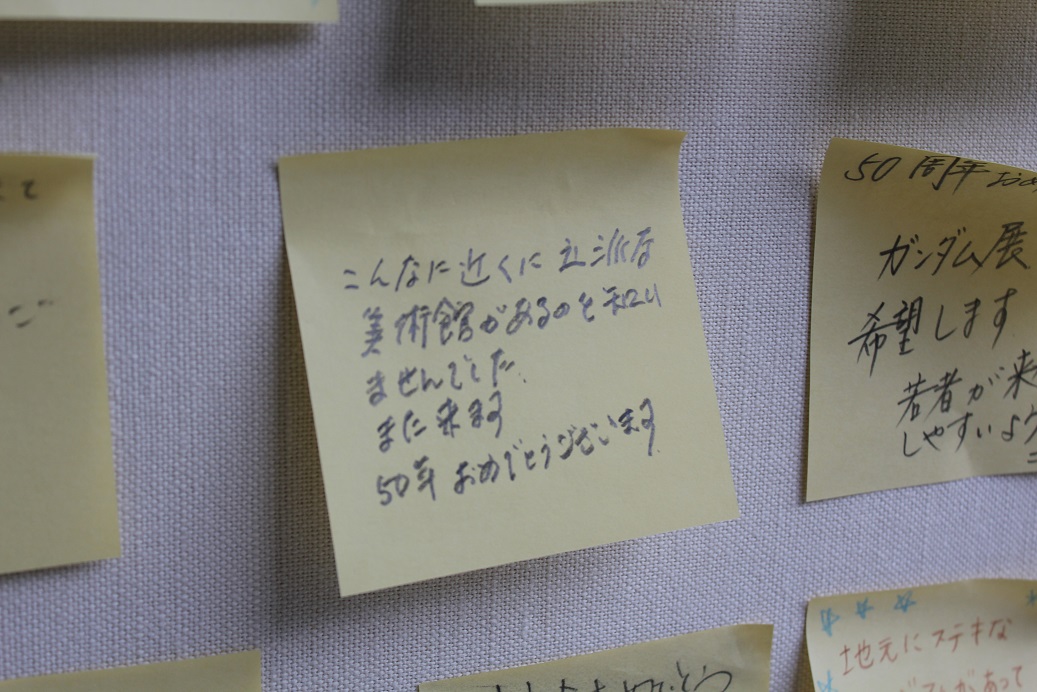 こんなに近くに立派な
美術館があるのを知り
ませんでした.
また来ます
50年 おめでとうございます
50周年 おめ
ガンダム展
希望します
若者が来
しやすいよう
地元にステキな
があって